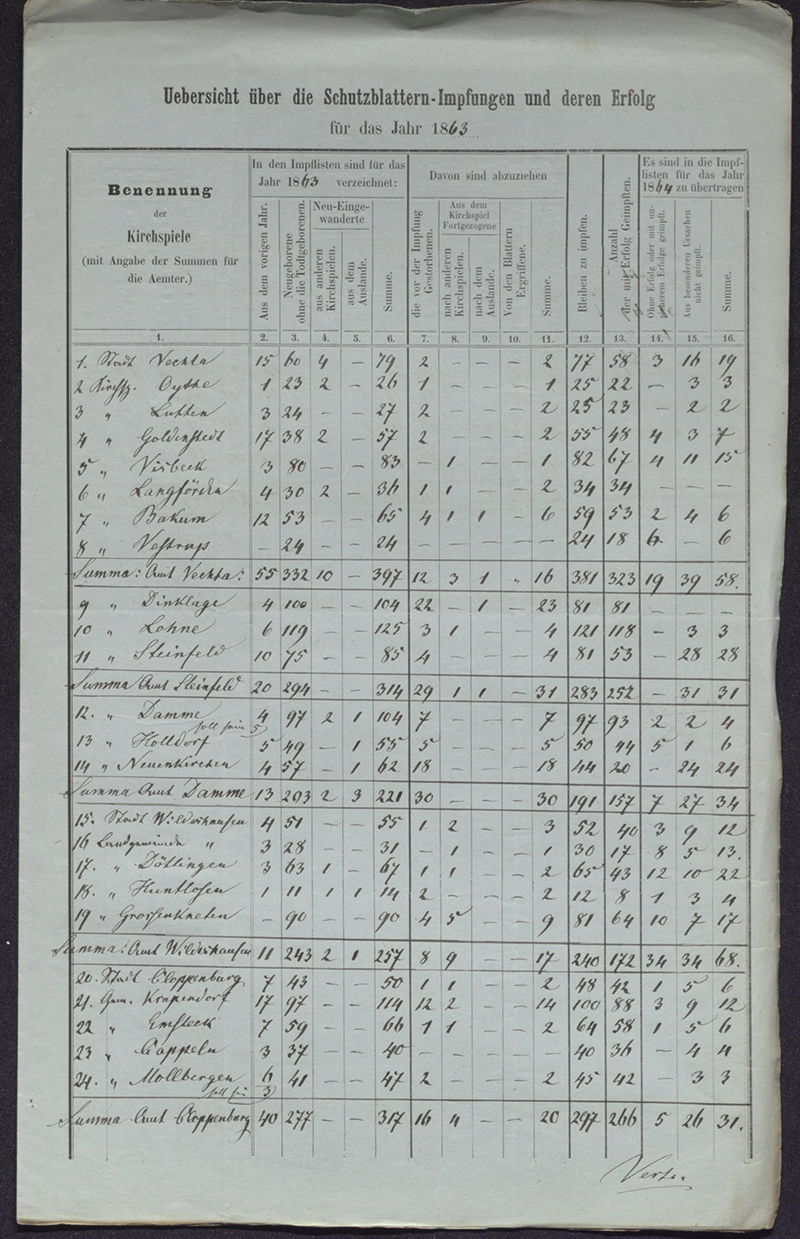 Uebersicht über die Schutzblattern-Impfungen und deren Erfolg
für das Jahr 1863
Benennung
der
Kirchspiele
(mit Angabe der Summen für
die Aemter.)
In den Impflisten sind für das
Jahr 1863 verzeichnet:
Aus dem vorigen Jahr.
Neugeborene
ohne die Todtgeborenen.
Neu-Einge-
wanderte
aus anderen
Kirchspielen.
aus dem
Auslande.
Summe.
Davon sind abzuziehen
die vor der Impfung
Gestorbenen.
Aus dem
Kirchspiel
Fortgezogene
nach anderen
Kirchspielen.
nach dem
Auslande.
Von den Blattern
Ergriffene.
Summe.
Bleiben zu impfen.
Anzahl
der mit Erfolg Geimpften.
Es sind in die Impf-
listen für das Jahr
1864 zu übertragen
Ohne Erfolg oder mit un-
sicherem Erfolge geimpft.
Aus besonderen Ursachen
nicht geimpft.
Summe.
1. 2. 3. 4. 5. 6. 7. 8. 9. 10. 11. 12. 13. 14. 15. 16.
1. Stadt Vechta 15 60 4 – 79 2 – – – 2 77 58 3 16 19
2 Kirchsp. Oythe 1 23 2 – 26 1 – – – 1 25 22 – 3 3
3 " Lutten 3 24 – – 27 2 – – – 2 25 23 – 2 2
4 " Goldenstedt 17 38 2 – 57 2 – – – 2 55 48 4 3 7
5 " Visbeck 3 80 – – 83 – 1 – – 1 82 67 4 11 15
6 " Langförden 4 30 2 – 36 1 1 – – 2 34 34 – – –
7 " Bakum 12 53 – – 65 4 1 1 – 6 59 53 2 4 6
8 " Vestrup – 24 – – 24 – – – – – 24 18 6 – 6
Summa: Amt Vechta: 55 332 10 – 397 12 3 1 " 16 381 323 19 39 58.
9 " Dinklage 4 100 – – 104 22 – 1 – 23 81 81 – – –
10 " Lohne 6 119 – – 125 3 1 – – 4 121 118 – 3 3
11 " Steinfeld 10 75 – – 85 4 – – – 4 81 53 – 28 28
Summa Amt Steinfeld 20 294 – – 314 29 1 1 – 31 283 252 – 31 31
12. " Damme 4 97 2 1 104 7 – – – 7 97 93 2 2 4
soll sein 5)
13 " Holldorf 5 49 – 1 55 5 – – – 5 50 44 5 1 6
14 " Neuenkirchen 4 57 – 1 62 18 – – – 18 44 20 – 24 24
Summa Amt Damme 13 203 2 3 221 30 – – – 30 191 157 7 27 34
15. Stadt Wildeshausen 4 51 – – 55 1 2 – – 3 52 40 3 9 12
16 Landgemeinde " 3 28 – – 31 – 1 – – 1 30 17 8 5 13.
17. " Dötlingen 3 63 1 – 67 1 1 – – 2 65 43 12 10 22
18. " Huntlosen 1 11 1 1 14 2 – – – 2 12 8 1 3 4
19 " Grossenkneten – 90 – – 90 4 5 – – 9 81 64 10 7 17
Summa: Amt Wildeshausen 11 243 2 1 257 8 9 – – 17 240 172 34 34 68.
20. Stadt Cloppenburg 7 43 – – 50 1 1 – – 2 48 42 1 5 6
21. Gem. Krapendorf 17 97 – – 114 12 2 – – 14 100 88 3 9 12
22 " Emsteck 7 59 – – 66 1 1 – – 2 64 58 1 5 6
23 " Cappeln 3 37 – – 40 – – – – – 40 36 – 4 4
24. " Mollbergen 6 41 – – 47 2 – – – 2 45 42 – 3 3
soll sein 3)
Summa Amt Cloppenburg 40 277 – – 317 16 4 – – 20 297 266 5 26 31.